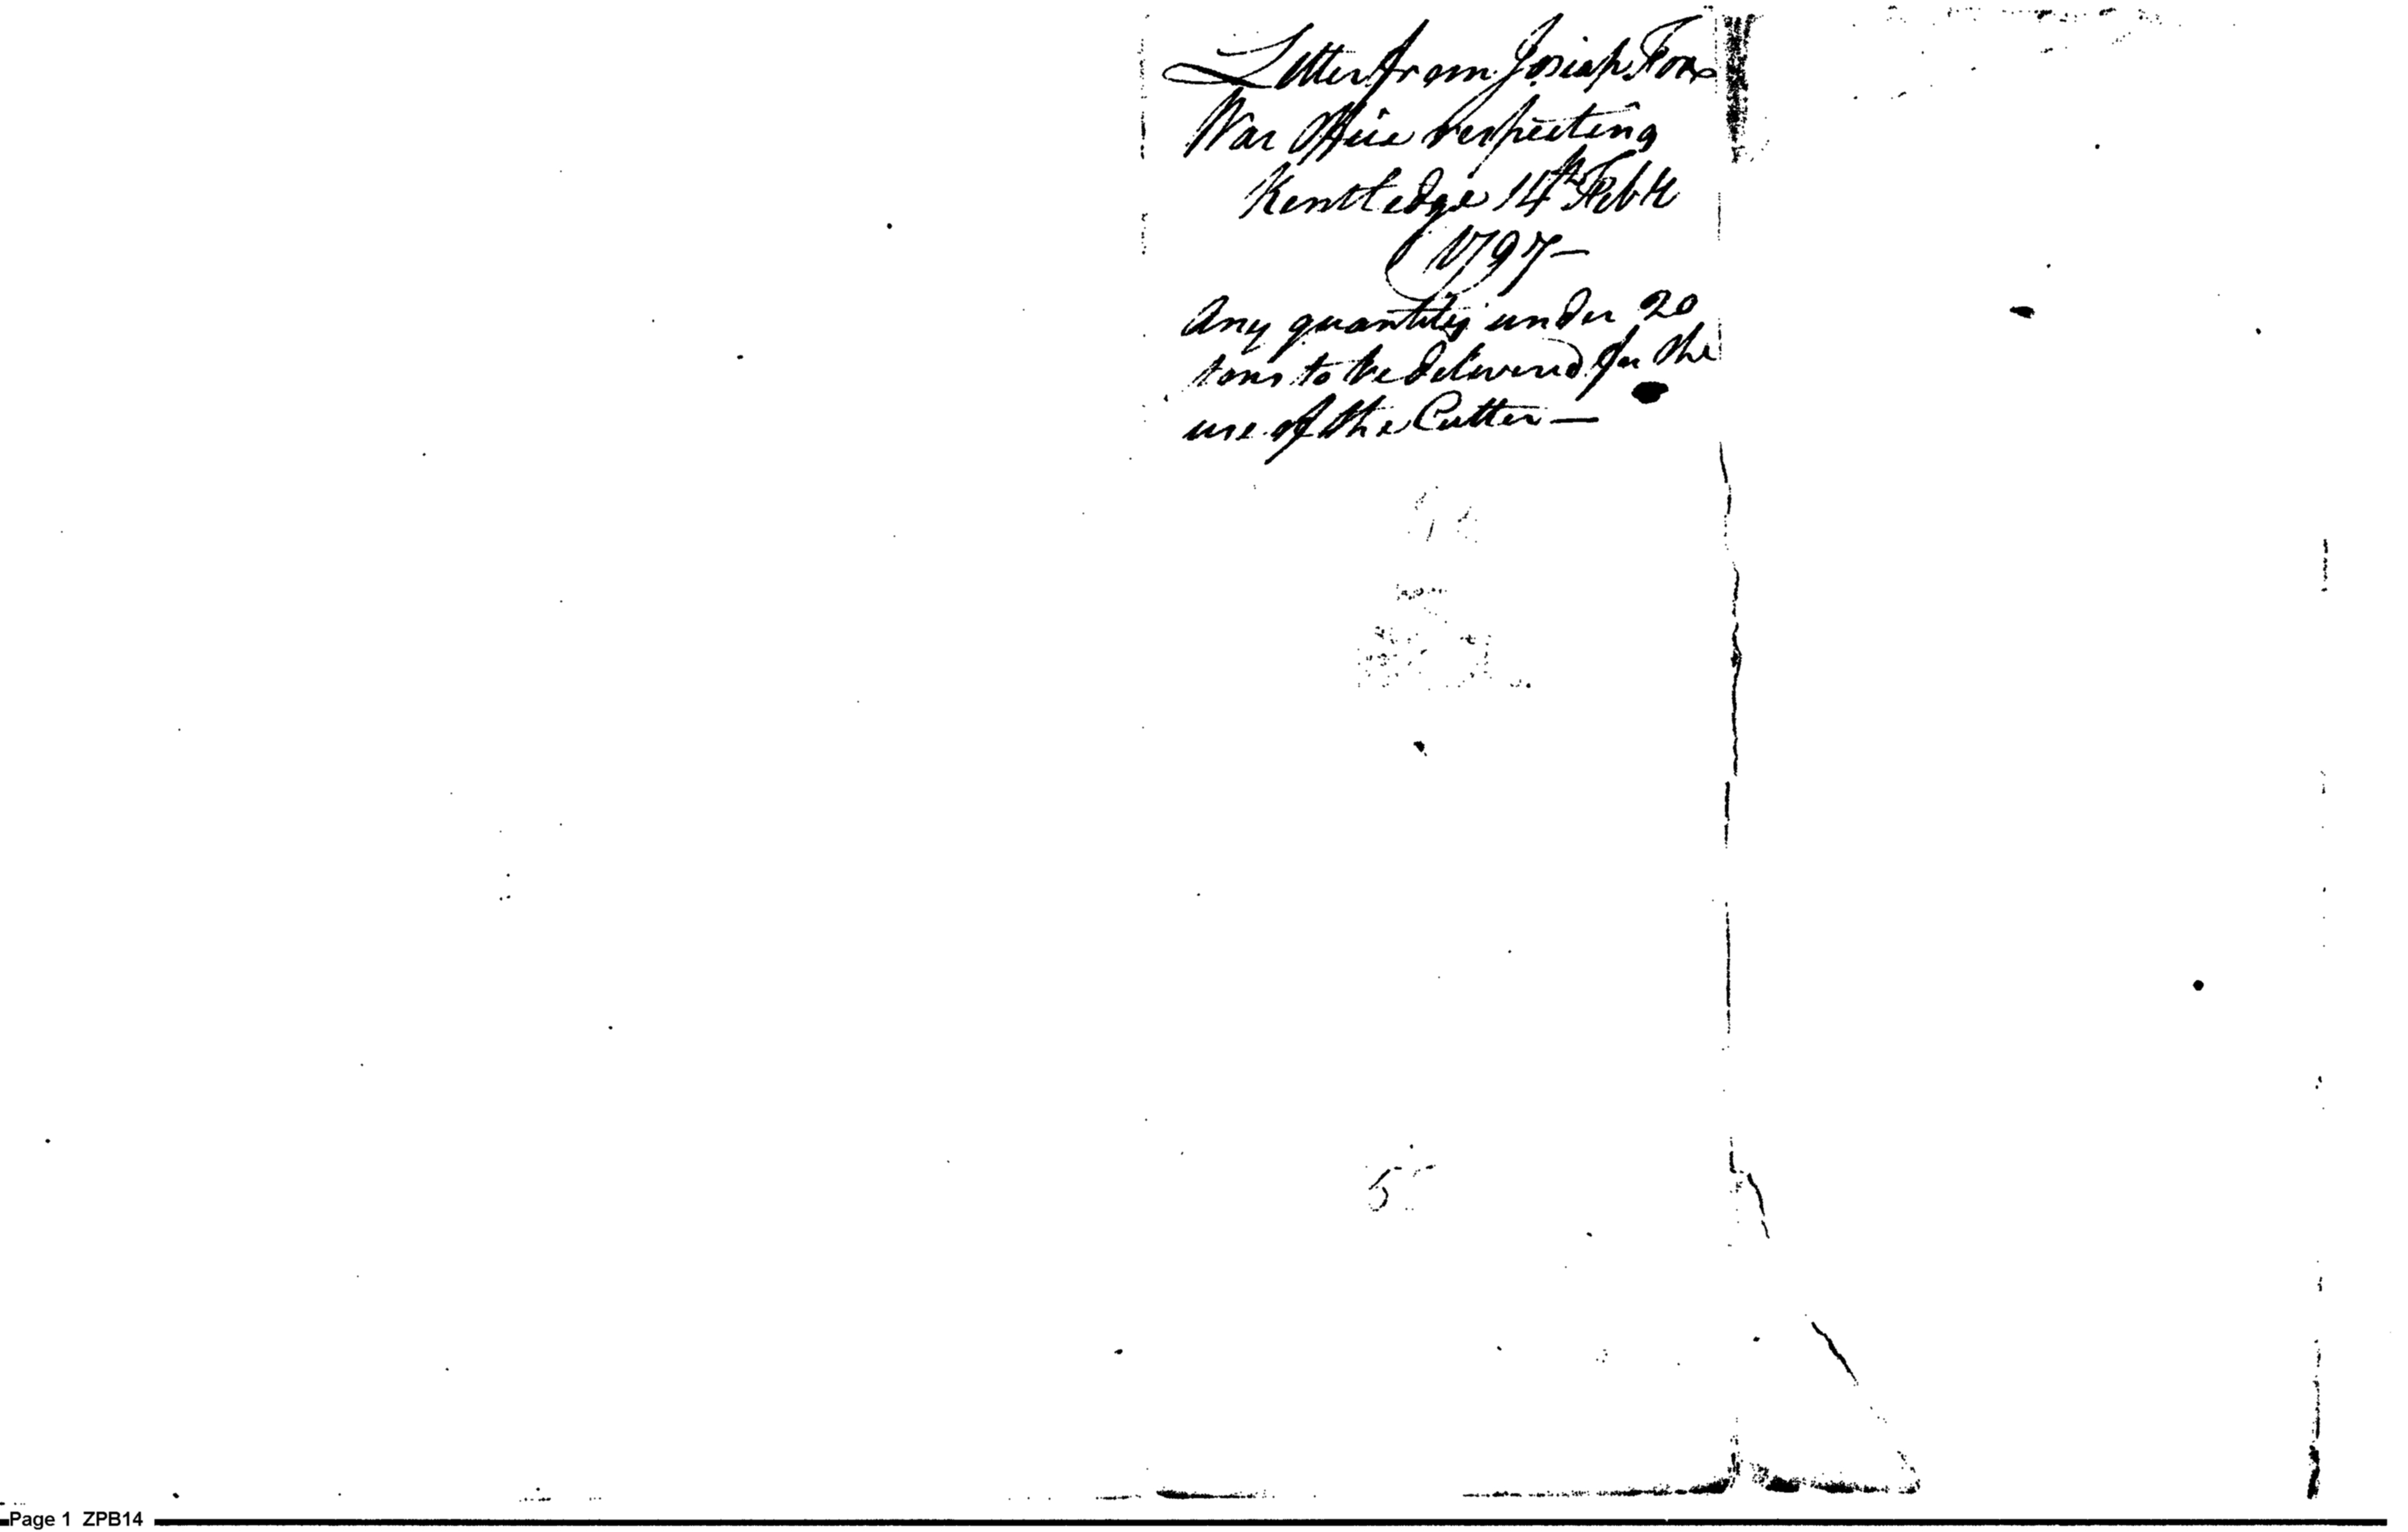 Letter from Josiah Fox
War Office respecting
Kentledge 14th Feby
1797—
Any quantity under 20
tons to be delivered for the
use of the Cutter—
5
Page 1 ZPB14